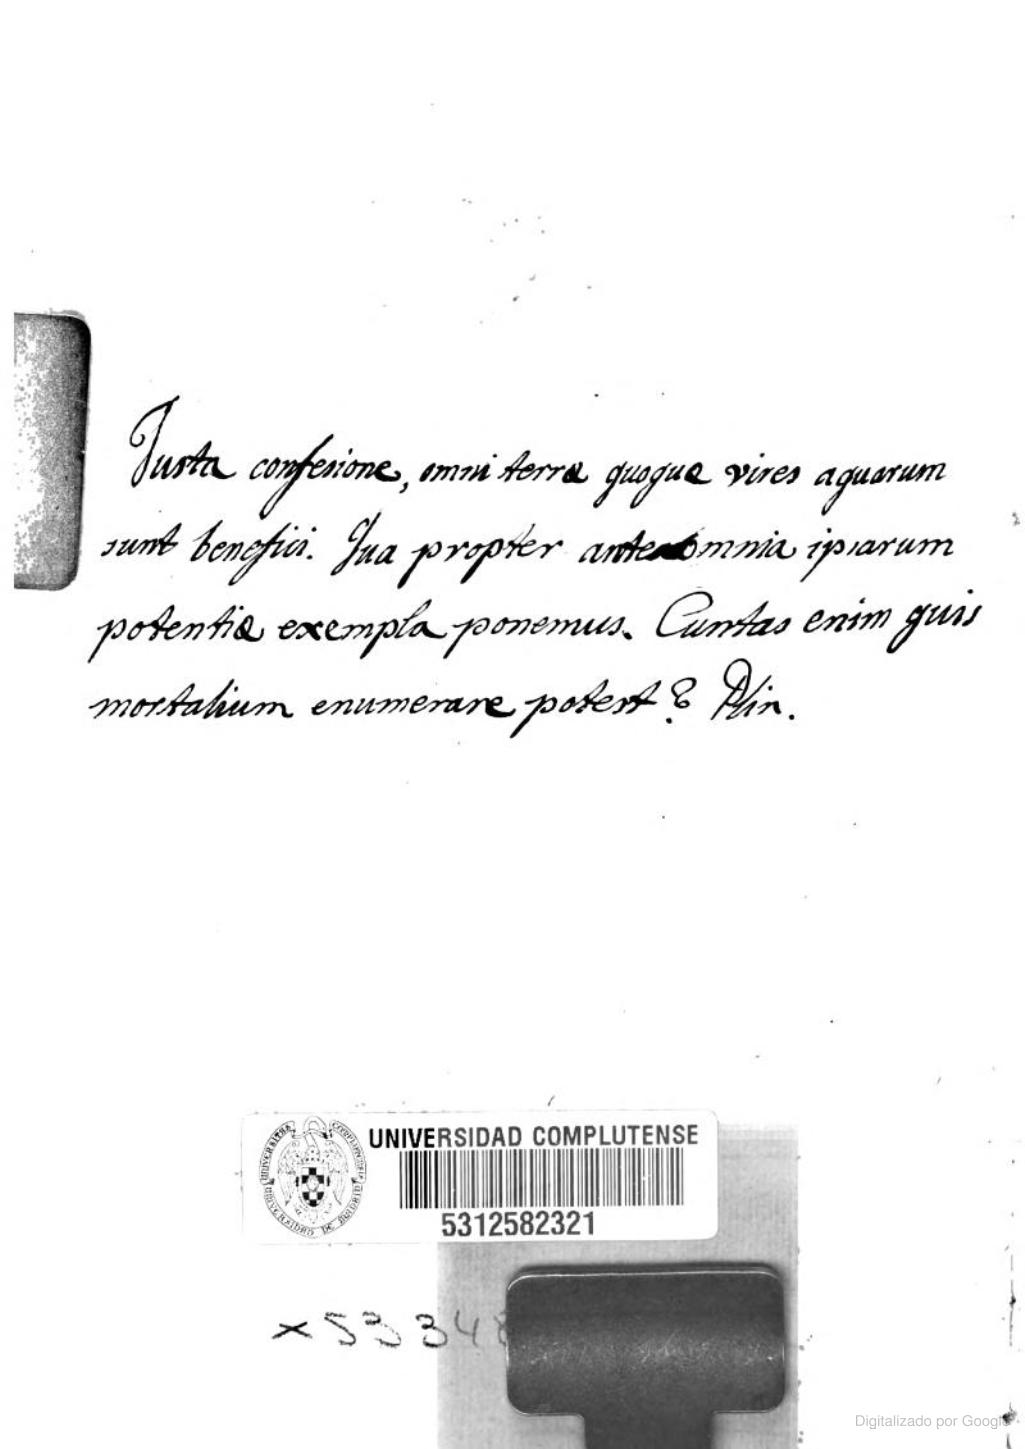 Justa confesione, omni terræ quoque vires aquarum
sunt benefici. Qua propter ante omnia ipsarum
potentiæ exempla ponemus. Cuntas enim quis
mortalium enumerare potest? Plin.
UNIVERSIDAD COMPLUTENSE
5312582321
x53348
Digitalizado por Google